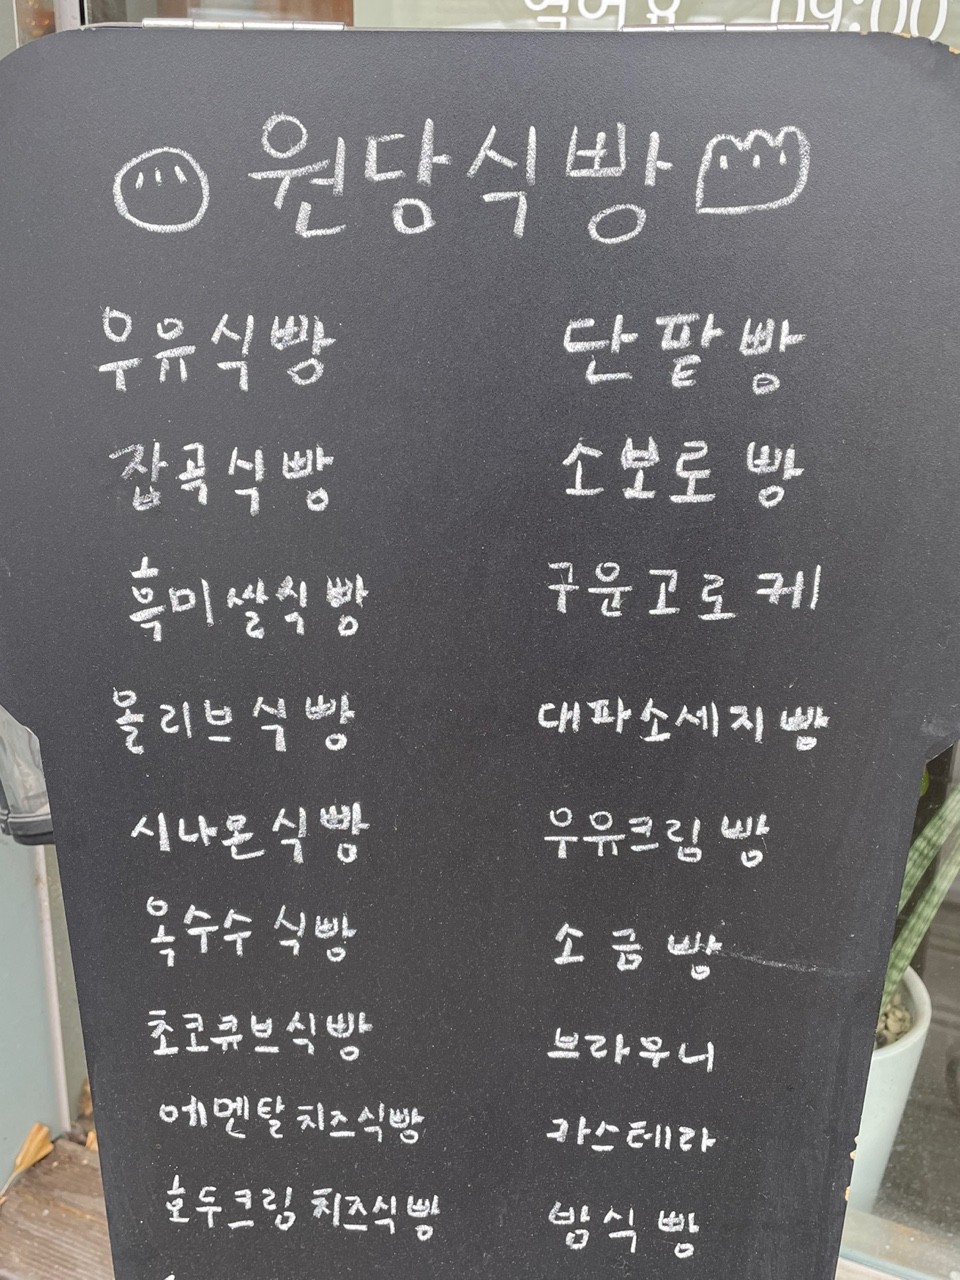 열어요 09:00
원당식빵
우유식빵
잡곡식빵
흑미쌀식빵
올리브식빵
시나몬식빵
옥수수식빵
초코큐브식빵
에멘탈치즈식빵
호두크림치즈식빵
단팥빵
소보로빵
구운고로케
대파소세지빵
우유크림빵
소금빵
브라우니
카스테라
밤식빵